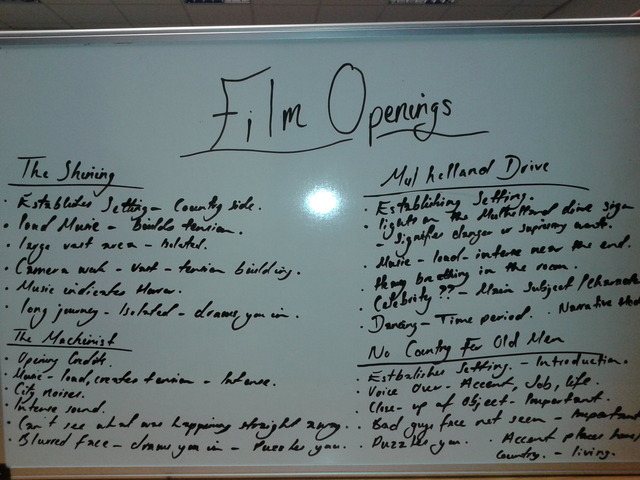 Film Openings
The Shining
• Establishes Setting - Country side.
• loud Music - Builds tension.
• large vast area - Isolated.
• Camera work - vast - tension building.
• Music indicates Horror.
• long journey - Isolated - draws you in.
The Machinist
• Opening Credits.
• Music - loud, creates tension - Intense.
• City noises.
• Intense sound.
• Can't see what was happening straight away.
• Blurred face - draws you in - Puzzles you.
Mulholland Drive
• Establishing Setting.
• lights on the Mulholland drive sign
- Signifies danger or
• Music - loud - intense near the end.
• Heavy breathing in the room.
• Celebrity ?? - Main Subject /
• Dancing - Time period. • Narrative
No Country For Old Men
• Establishes Setting. - Introduction.
• Voice Over - Accent, Job, life.
• Close-up of Object - Important.
• Bad guys face not seen - Important
• Puzzles you. • Accent places
country. - living.